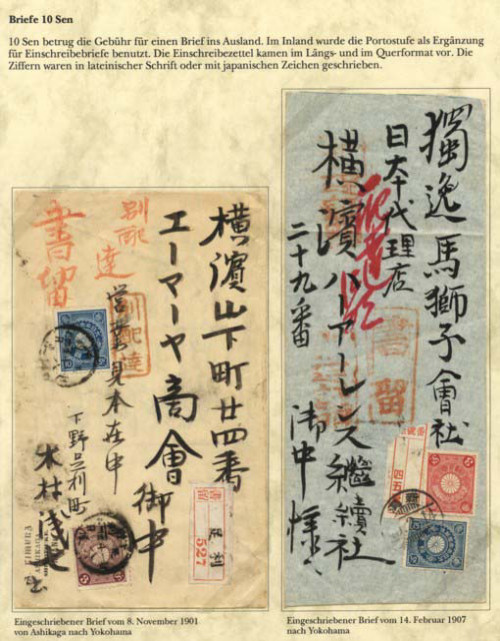 Briefe 10 Sen
10 Sen betrug die Gebühr für einen Brief ins Ausland. Im Inland wurde die Portostufe als Ergänzung
für Einschreibebriefe benutzt. Die Einschreibezettel kamen im Längs- und im Querformat vor. Die
Ziffern waren in lateinischer Schrift oder mit japanischen Zeichen geschrieben.
横濱山下町廿四番
エーマーヤ商會
御中
別配達
書留
別配達
営業見本在中
下野足利町
木村
足利
527
KIMURA
ASHIKAGA
獨逸馬獅子會社
日本代理店
横濱
二十九番
アーレンス継續社
御中
書留
四五
Eingeschriebener Brief vom 8. November 1901
von Ashikaga nach Yokohama
Eingeschriebener Brief vom 14. Februar 1907
nach Yokohama